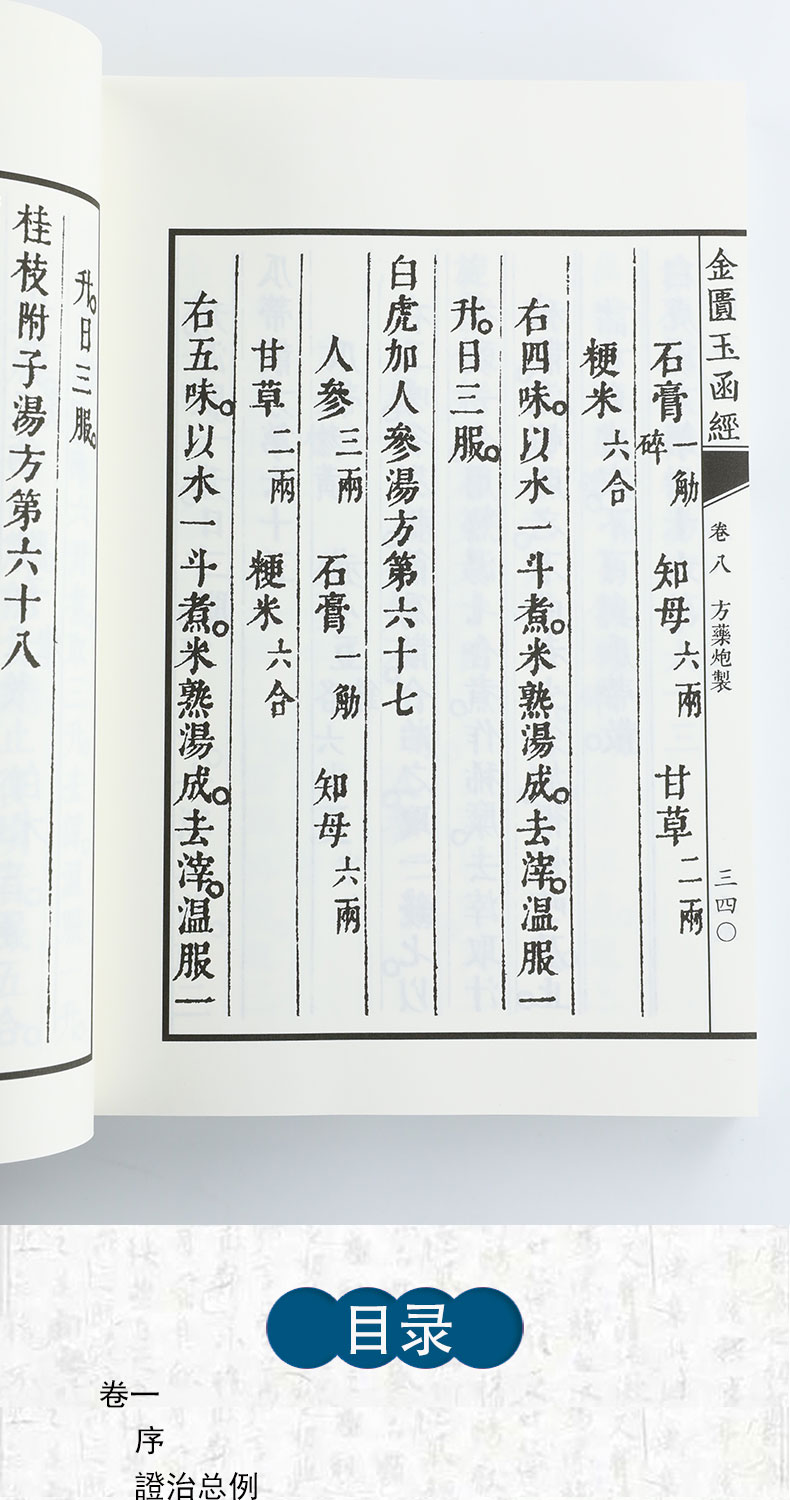 金匱玉函經
卷八 方藥炮製
三四〇
石膏一觔碎 知母六兩 甘草二兩
粳米六合
右四味。以水一斗煮。米熟湯成。去滓。温服一
升。日三服。
白虎加人參湯方第六十七
人參三兩 石膏一觔 知母六兩
甘草二兩 粳米六合
右五味。以水一斗煮。米熟湯成。去滓。温服一
升。日三服。
桂枝附子湯方第六十八
目录
卷一
序
證治总例